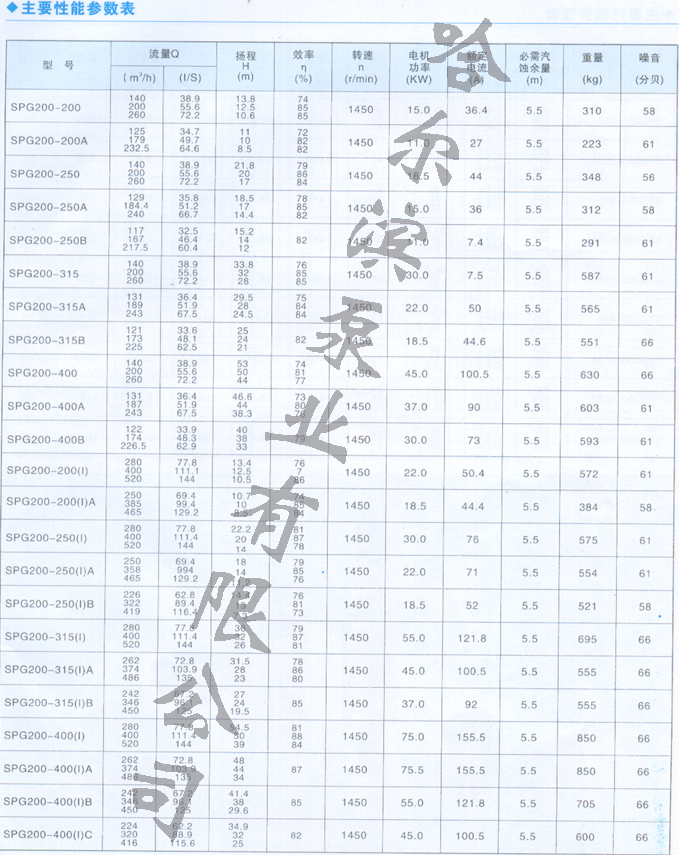 ◆主要性能参数表
型 号 流量Q 扬程 H (m) 效率 η (%) 转速 n (r/min) 电机功率 (KW) 额定电流 (A) 必需汽蚀余量 (m) 重量 (kg) 噪音 (分贝)
(m³/h) (l/S)
SPG200-200 140 200 260 38.9 55.6 72.2 13.8 12.5 10.6 74 85 85 1450 15.0 36.4 5.5 310 58
SPG200-200A 125 179 232.5 34.7 49.7 64.6 11 10 8.5 72 82 82 1450 11.0 27 5.5 223 61
SPG200-250 140 200 260 38.9 55.6 72.2 21.8 20 17 79 86 84 1450 18.5 44 5.5 348 56
SPG200-250A 129 184.4 240 35.8 51.2 66.7 18.5 17 14.4 78 85 82 1450 15.0 36 5.5 312 58
SPG200-250B 117 167 217.5 32.5 46.4 60.4 15.2 14 12 82 1450 11.0 7.4 5.5 291 61
SPG200-315 140 200 260 38.9 55.6 72.2 33.8 32 28 76 85 85 1450 30.0 7.5 5.5 587 61
SPG200-315A 131 189 243 36.4 51.9 67.5 29.5 28 24.5 75 84 84 1450 22.0 50 5.5 565 61
SPG200-315B 121 173 225 33.6 48.1 62.5 25 24 21 82 1450 18.5 44.6 5.5 551 66
SPG200-400 140 200 260 38.9 55.6 72.2 53 50 44 74 81 77 1450 45.0 100.5 5.5 630 66
SPG200-400A 131 187 243 36.4 51.9 67.5 46.6 44 38.3 73 80 76 1450 37.0 90 5.5 603 61
SPG200-400B 122 174 226.5 33.9 48.3 62.9 40 38 33 79 1450 30.0 73 5.5 593 61
SPG200-200(I) 280 400 520 77.8 111.1 144 13.4 12.5 10.5 76 7 86 1450 22.0 50.4 5.5 572 61
SPG200-200(I)A 250 385 465 69.4 99.4 129.2 10.7 10 8.5 74 85 84 1450 18.5 44.4 5.5 384 58
SPG200-250(I) 280 400 520 77.8 111.4 144 22.2 20 14 81 87 78 1450 30.0 76 5.5 575 61
SPG200-250(I)A 250 358 465 69.4 994 129.2 18 14 11.2 79 85 76 1450 22.0 71 5.5 554 61
SPG200-250(I)B 226 322 419 62.8 89.4 116.4 14.4 13 76 81 73 1450 18.5 52 5.5 521 58
SPG200-315(I) 280 400 520 77.8 111.4 144 36 32 26 79 87 81 1450 55.0 121.8 5.5 695 66
SPG200-315(I)A 262 374 486 72.8 103.9 135 31.5 28 23 78 86 80 1450 45.0 100.5 5.5 555 66
SPG200-315(I)B 242 346 450 67.2 96.1 125 27 24 19.5 85 1450 37.0 92 5.5 555 66
SPG200-400(I) 280 400 520 77.8 111.4 144 54.5 50 39 81 88 84 1450 75.0 155.5 5.5 850 66
SPG200-400(I)A 262 374 486 72.8 103.9 135 48 44 34 87 1450 75.5 155.5 5.5 850 66
SPG200-400(I)B 242 346 450 67.2 96.1 125 41.4 38 29.6 85 1450 55.0 121.8 5.5 705 66
SPG200-400(I)C 224 320 416 62.2 88.9 115.6 34.9 32 25 82 1450 45.0 100.5 5.5 600 66
哈尔滨泵业有限公司